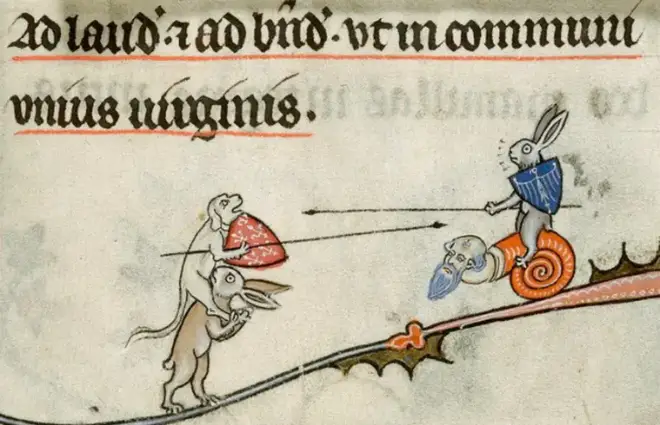 Ad laud̛ ⁊ ad bn̄d̛. vt in communi
vnius uirginis.